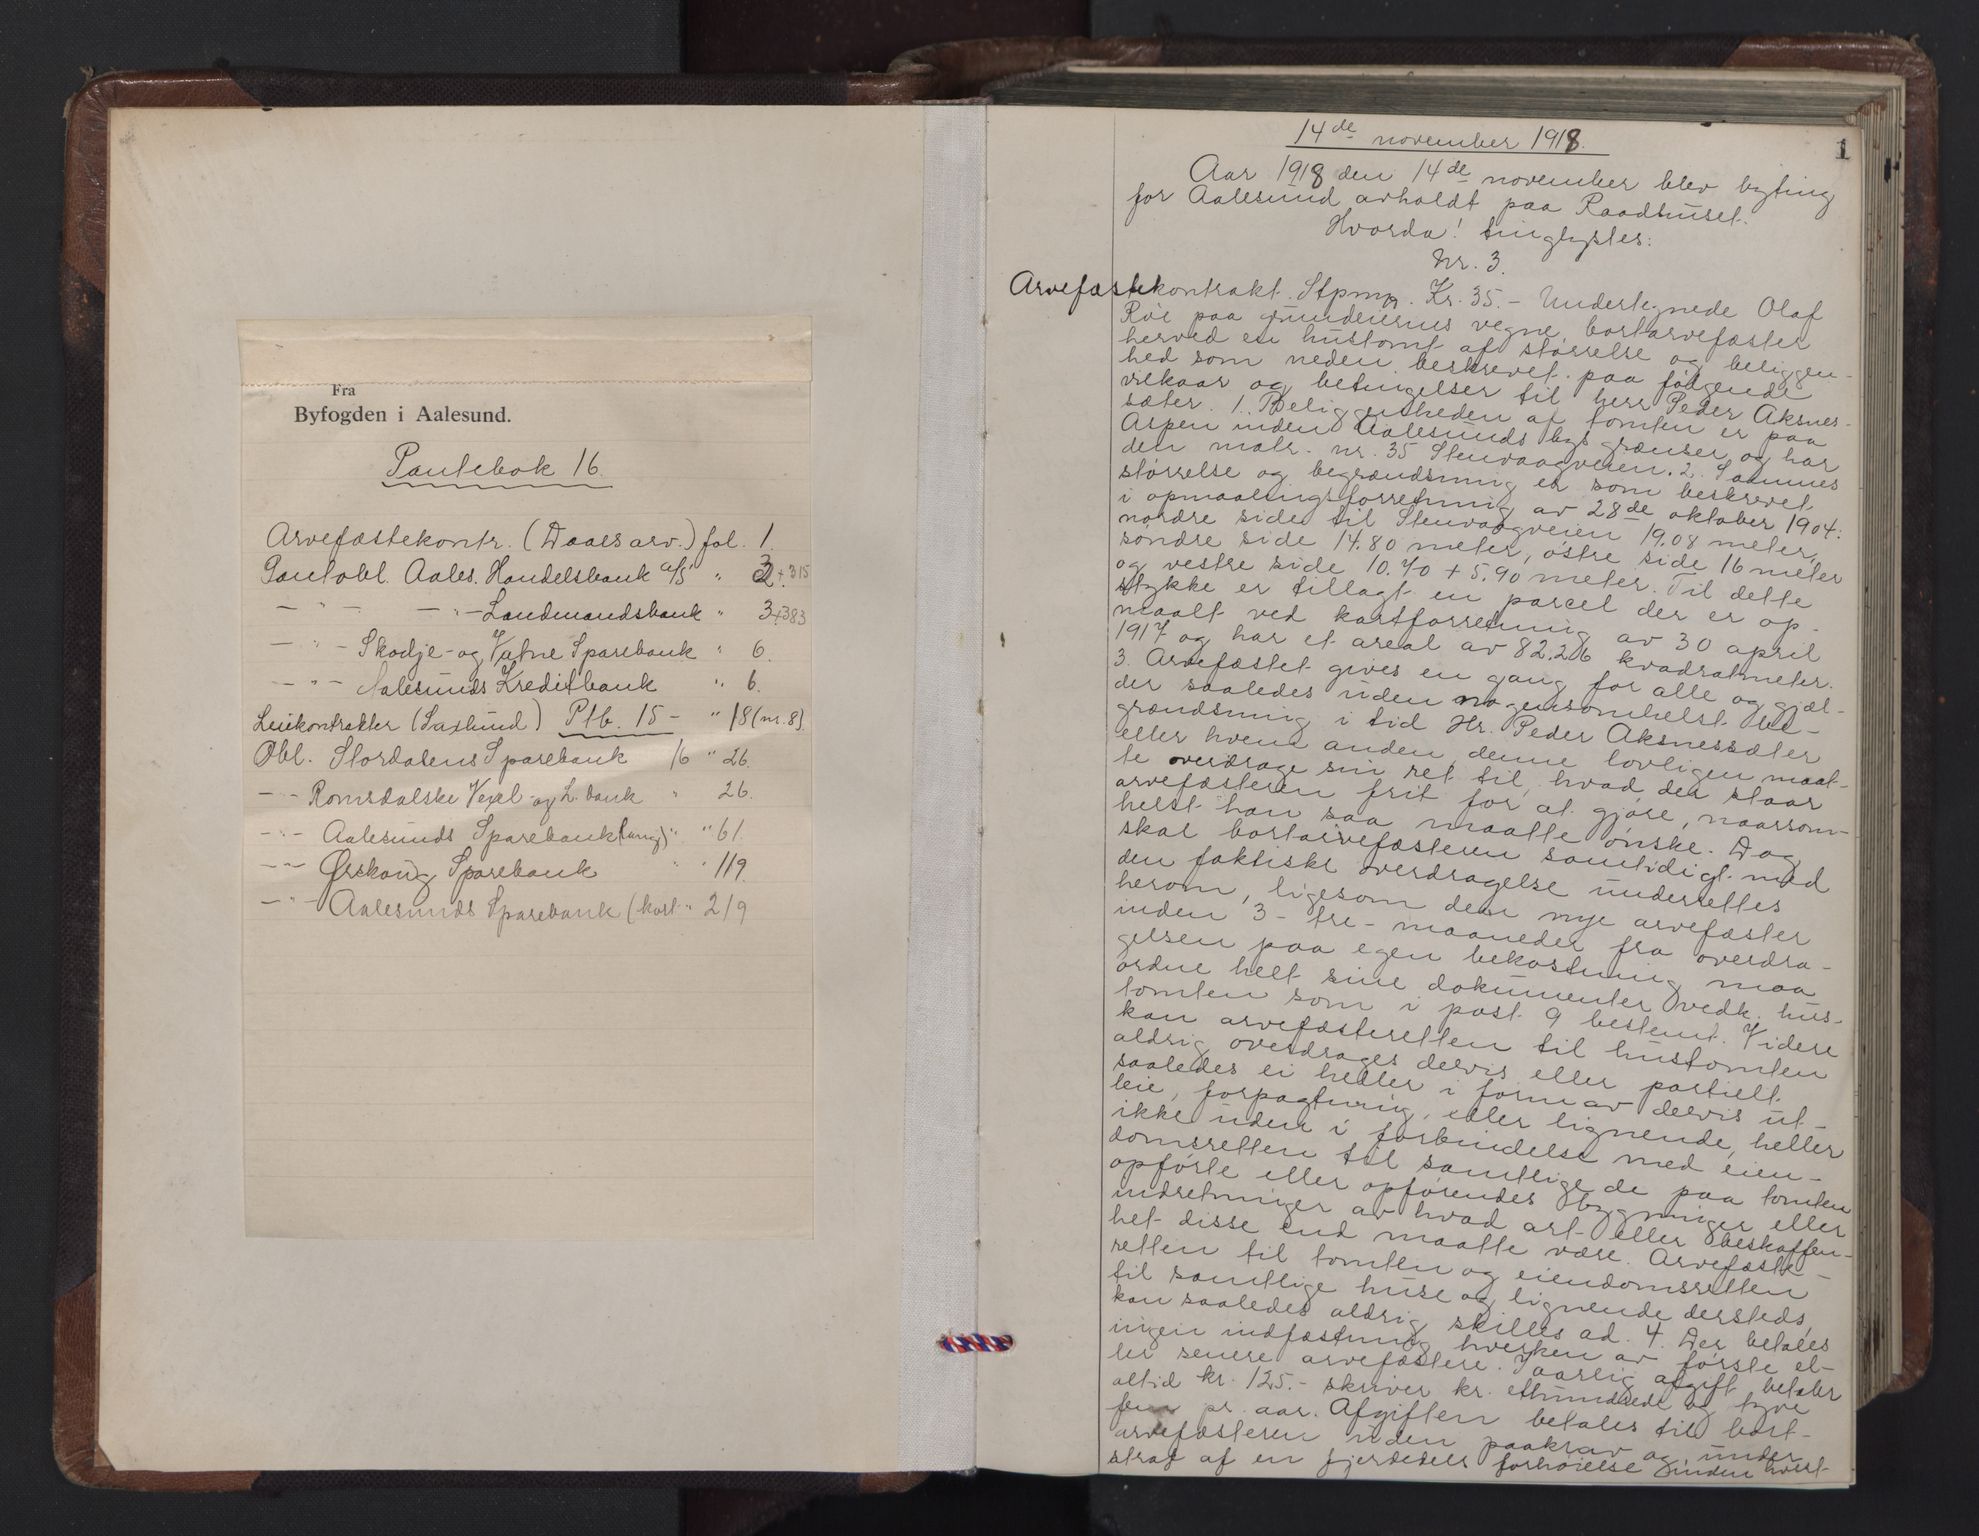 Fra
Byfogden i Aalesund.
Pantebok 16.
Arvefæstekontr. (Daaes arv.) fol. 1.
Pantobl. Aales. Handelsbank a/s " 2 + 315
— " — — " — Landmandsbank " 3 + 383
— " — Skodje- og Vatne Sparebank " 6.
— " — Aalesunds Kreditbank " 6.
Leiekontrakter (Saxlund) Ptb. 15 — " 18 (nr. 8).
Obl. Stordalens Sparebank 16 " 26.
— " — Romsdalske Vexel- og L. bank " 26.
— " — Aalesunds Sparebank (ung) " " 61.
— " — Ørskoug Sparebank " " 119.
— " — Aalesunds Sparebank (kort " 219
1
14de november 1918.
Aar 1918 den 14de november blev byting
for Aalesund avholdt paa Raadhuset.
Hvorda! tinglystes:
Nr. 3.
Arvefæstekontrakt. Stpmp. Kr. 35.- Undertegnede Olaf
Röe paa grundeiernes vegne bortarvefæster
herved en hustomt af størrelse og beliggen-
hed som neden beskrevet paa følgende
vilkaar og betingelser til herr Peder Aksnes-
sæter. 1. Beliggenheden af tomten er paa
Aspen inden Aalesunds bys grænser og har
den matr. nr. 35 Stenvaagveien. 2. Sammes
størrelse og begrændsning er som beskrevet
i opmaalingsforretning av 28de oktober 1904:
nordre side til Stenvaagveien 19.08 meter,
søndre side 14.80 meter, østre side 16 meter
og vestre side 10.70 + 5.90 meter. Til dette
stykke er tillagt en parcel der er op-
maalt ved kartforretning av 30 april
1917 og har et areal av 82.26 kvadratmeter.
3. Arvefæstet gives en gang for alle og gjæl-
der saaledes uden nogensomhelst be-
grændsning i tid Hr. Peder Aksnessæter
eller hvem anden denne lovligen maat-
te overdrage sin ret til, hvad der staar
arvefæsteren frit for at gjøre, naarsom-
helst han saa maatte ønske. Dog
skal bortarvefæsteren samtidigt med
den faktiske overdragelse underrettes
herom, ligesom den nye arvefæster
inden 3 - tre - maaneder fra overdra-
gelsen paa egen bekostning maa
ordne helt sine dokumenter vedk. hus-
tomten som i post 9 bestemt. Videre
kan arvefæsteretten til hustomten
aldrig overdrages delvis eller partielt
saaledes ei heller i form av delvis ut-
leie, forpagtning, eller lignende, heller
ikke uden i forbindelse med eien-
domsretten til samtlige de paa tomten
opførte eller opførendes bygninger eller
indretninger av hvad art eller beskaffen-
het disse end maatte være. Arvefæste-
retten til tomten og eiendomsretten
til samtlige huse og lignende dersteds,
kan saaledes aldrig skilles ad. 4. Der betales
ingen indfæstning hverken av første el-
ler senere arvefæstere. I aarlig afgift betaler
altid kr. 125.- skriver kr. ethundrede og tyve
fem pr. aar. Afgiften betales til bort-
arvefæsteren uden paakrav og under
straf af en fjerdedels forhøielse inden hvert